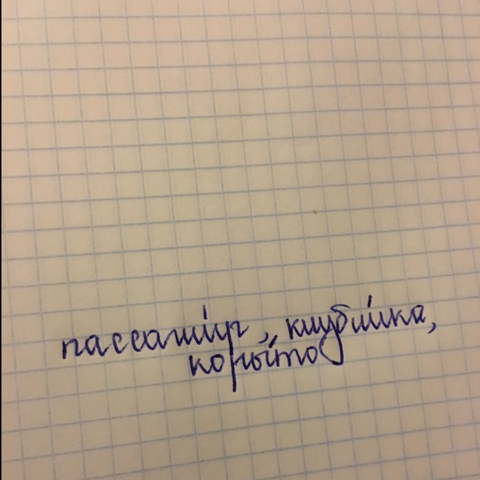 пассажир, клубника,
корыто